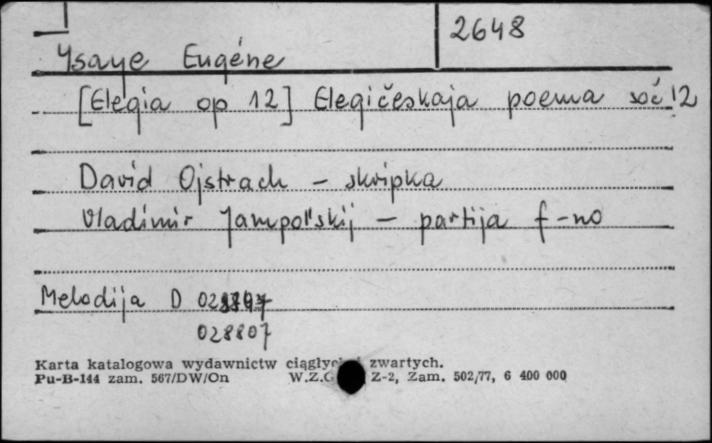 2648
Ysaye Eugéne
[Elegia op 12] Elegičeskaja poema soč 12
David Ojstrach - skripka
Vladimir Jampol'skij - partija f-no
Melodija D
028807
Karta katalogowa wydawnictw zwartych.
Pu-B-144 zam. 567/DW/On W.Z.G Z-2, Zam. 502/77, 6 400 000